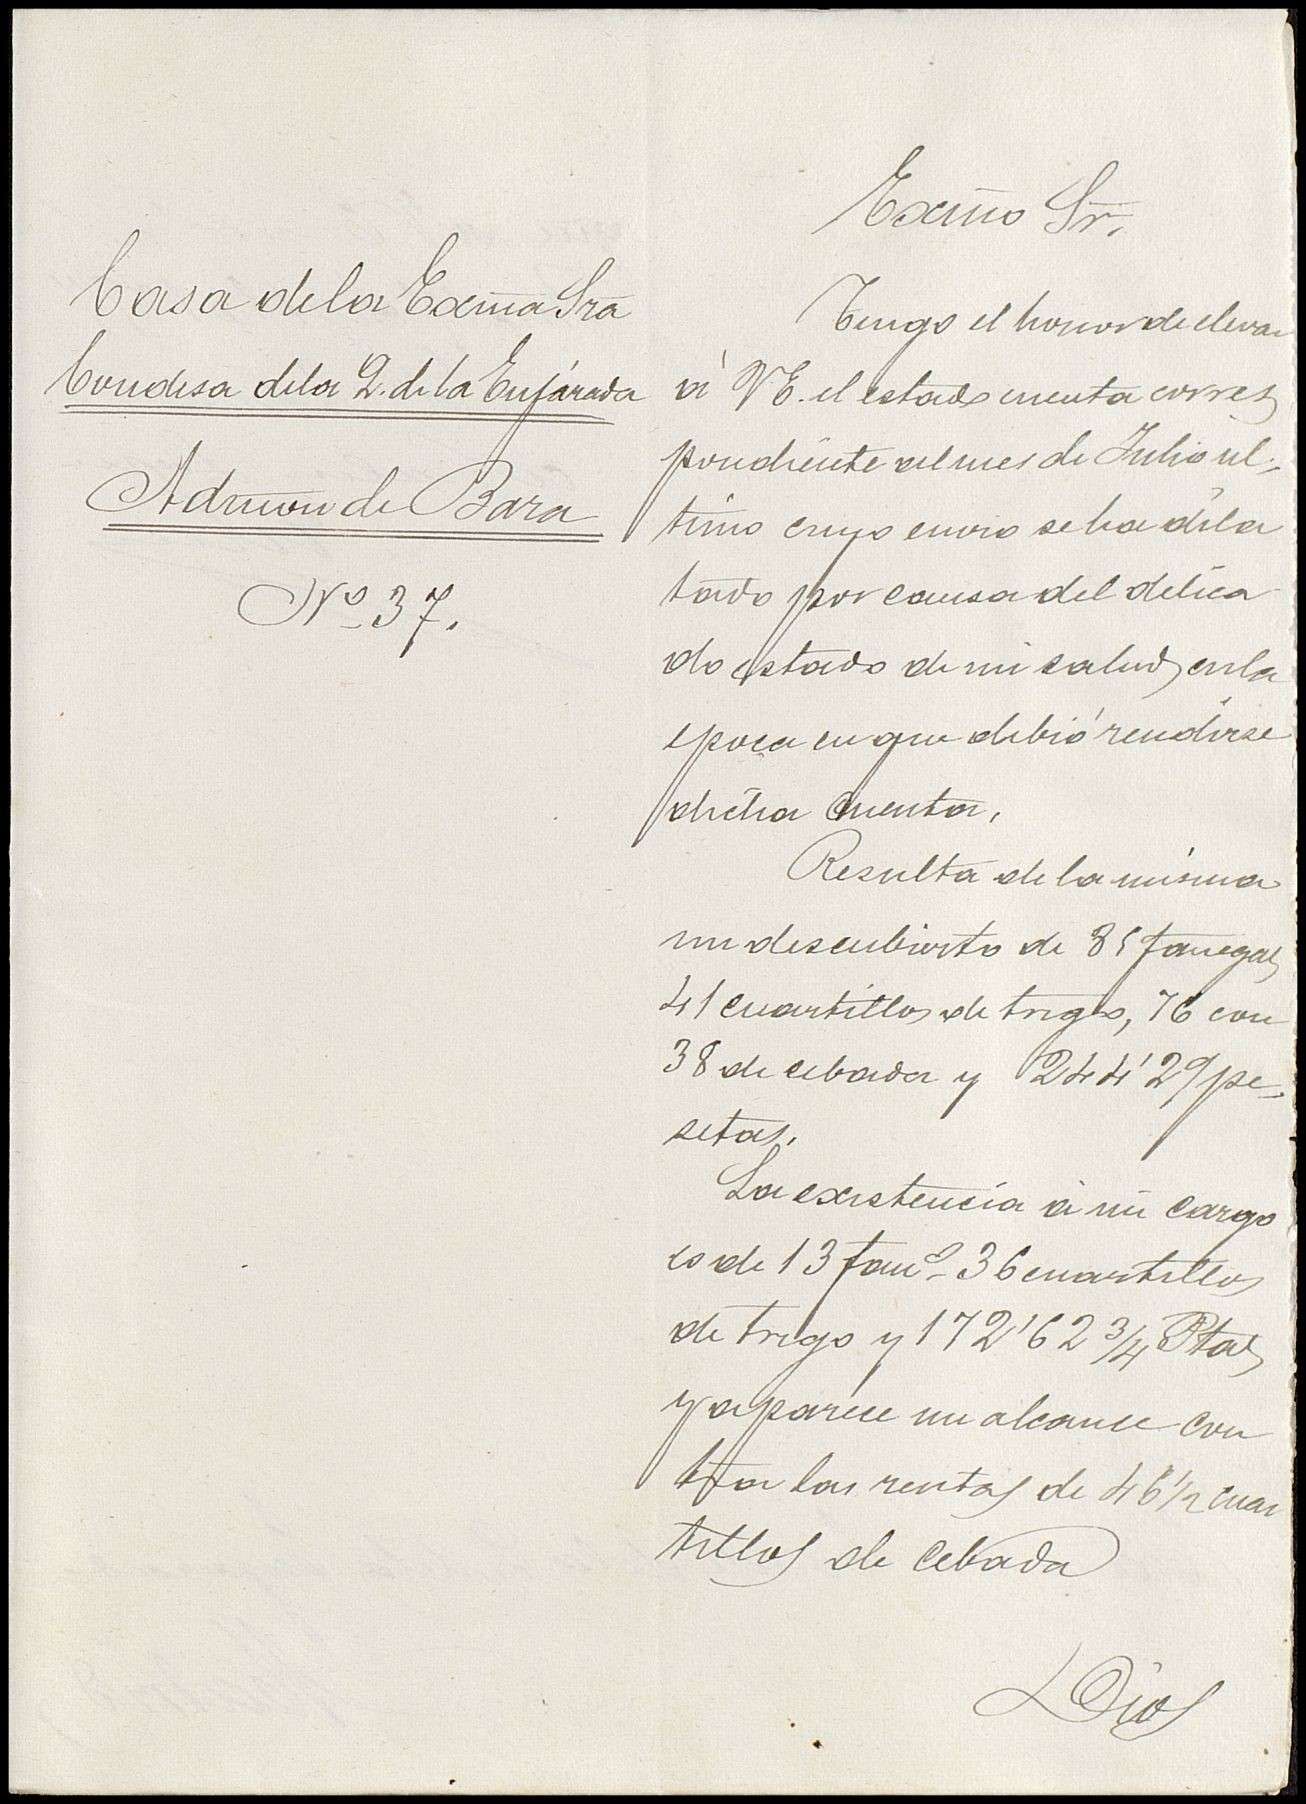 Casa de la Exma Sra
Condesa de la Q. de la Enjarada
Admon de Baza
Nº 37.
Exmo Sr.
Tengo el honor de elevar
á VE. el estado cuenta corres
pondiente al mes de Julio ul-
timo cuyo envio se ha dila
tado por causa del delica
do estado de mi salud, en la
epoca en que debió rendirse
dicha cuenta.
Resulta de la misma
un descubierto de 85 fanegas
41 cuartillos de trigo, 76 con
38 de cebada y 244'29 pe-
setas.
La existencia á mi cargo
es de 13 fans 36 cuartillos
de trigo y 172'62 3/4 Ptas
y aparece un alcance con
tra las rentas de 46 1/2 cuar
tillos de cebada
Dios